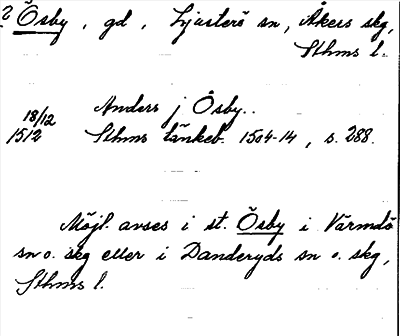 ? Ösby, gd, Ljusterö sn, Åkers skg,
Sthms l.
18/12 Anders j Ösby..
1512 Sthms tänkeb. 1504-14, s. 288.
Möjl. avses i st. Ösby i Värmdö
sn o. skg eller i Danderyds sn o. skg,
Sthms l.